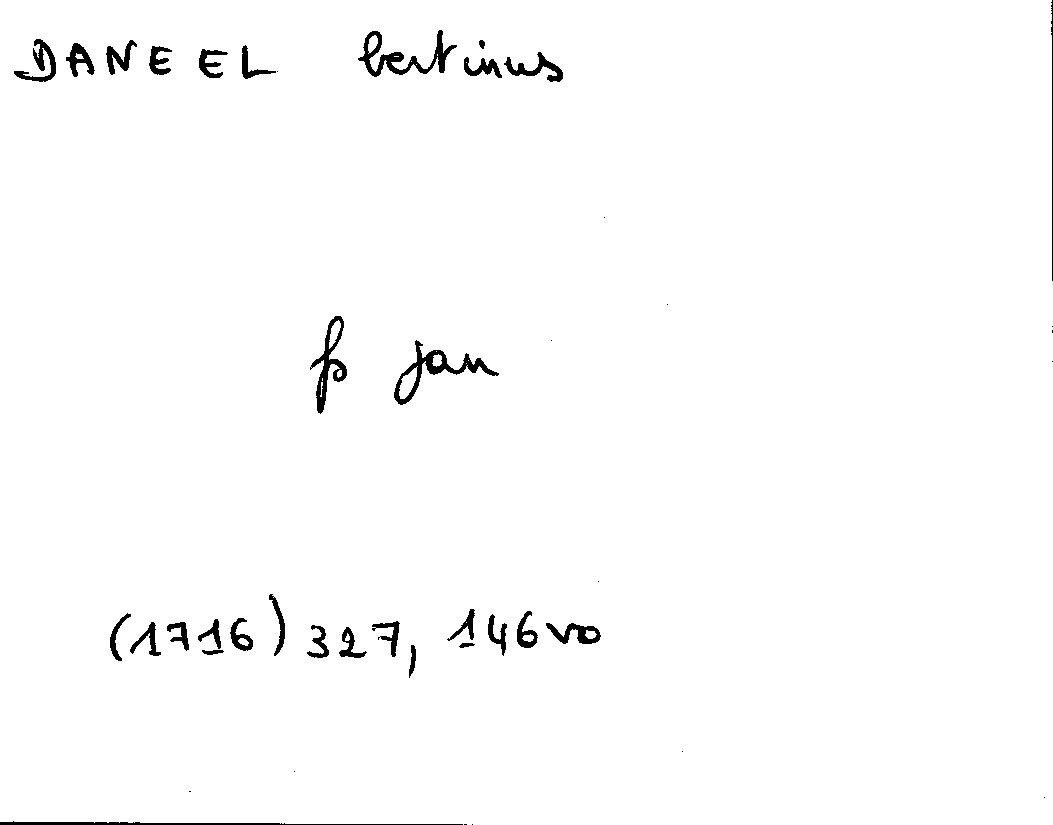 DANEEL bertinus
fs jan
(1716) 327, 146vo